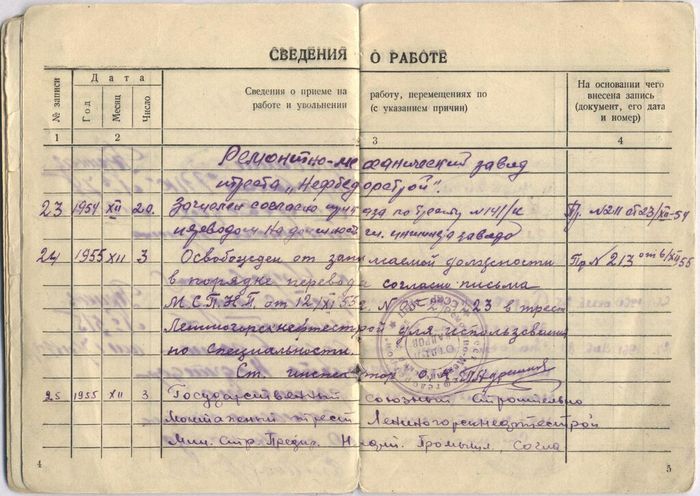 СВЕДЕНИЯ О РАБОТЕ
№ записи
Дата
Год
Месяц
Число
Сведения о приеме на работу, перемещениях по
работе и увольнении (с указанием причин)
На основании чего
внесена запись
(документ, его дата
и номер)
1 2 3 4
Ремонтно-механический завод
треста „Нефтедорстрой".
23 1954 XII 20. Зачислен согласно приказа по тресту №141/к Пр. №211 от 23/XII-54
переводом на должность гл. инженера завода
24 1955 XII 3 Освобожден от занимаемой должности Пр. №213 от 6/XII 55
в порядке перевода согласно письма
М.С.П.Н.П. от 12/XI 55 г. 23 в трест
Лениногорскнефтестрой для использования
по специальности.
Ст. инспектор О.К.
25 1955 XII 3 Государственный союзный строительно
монтажный трест Лениногорскнефтестрой
Мин. Стр. Предпр. Нефт. Промышл. Согла
4
5